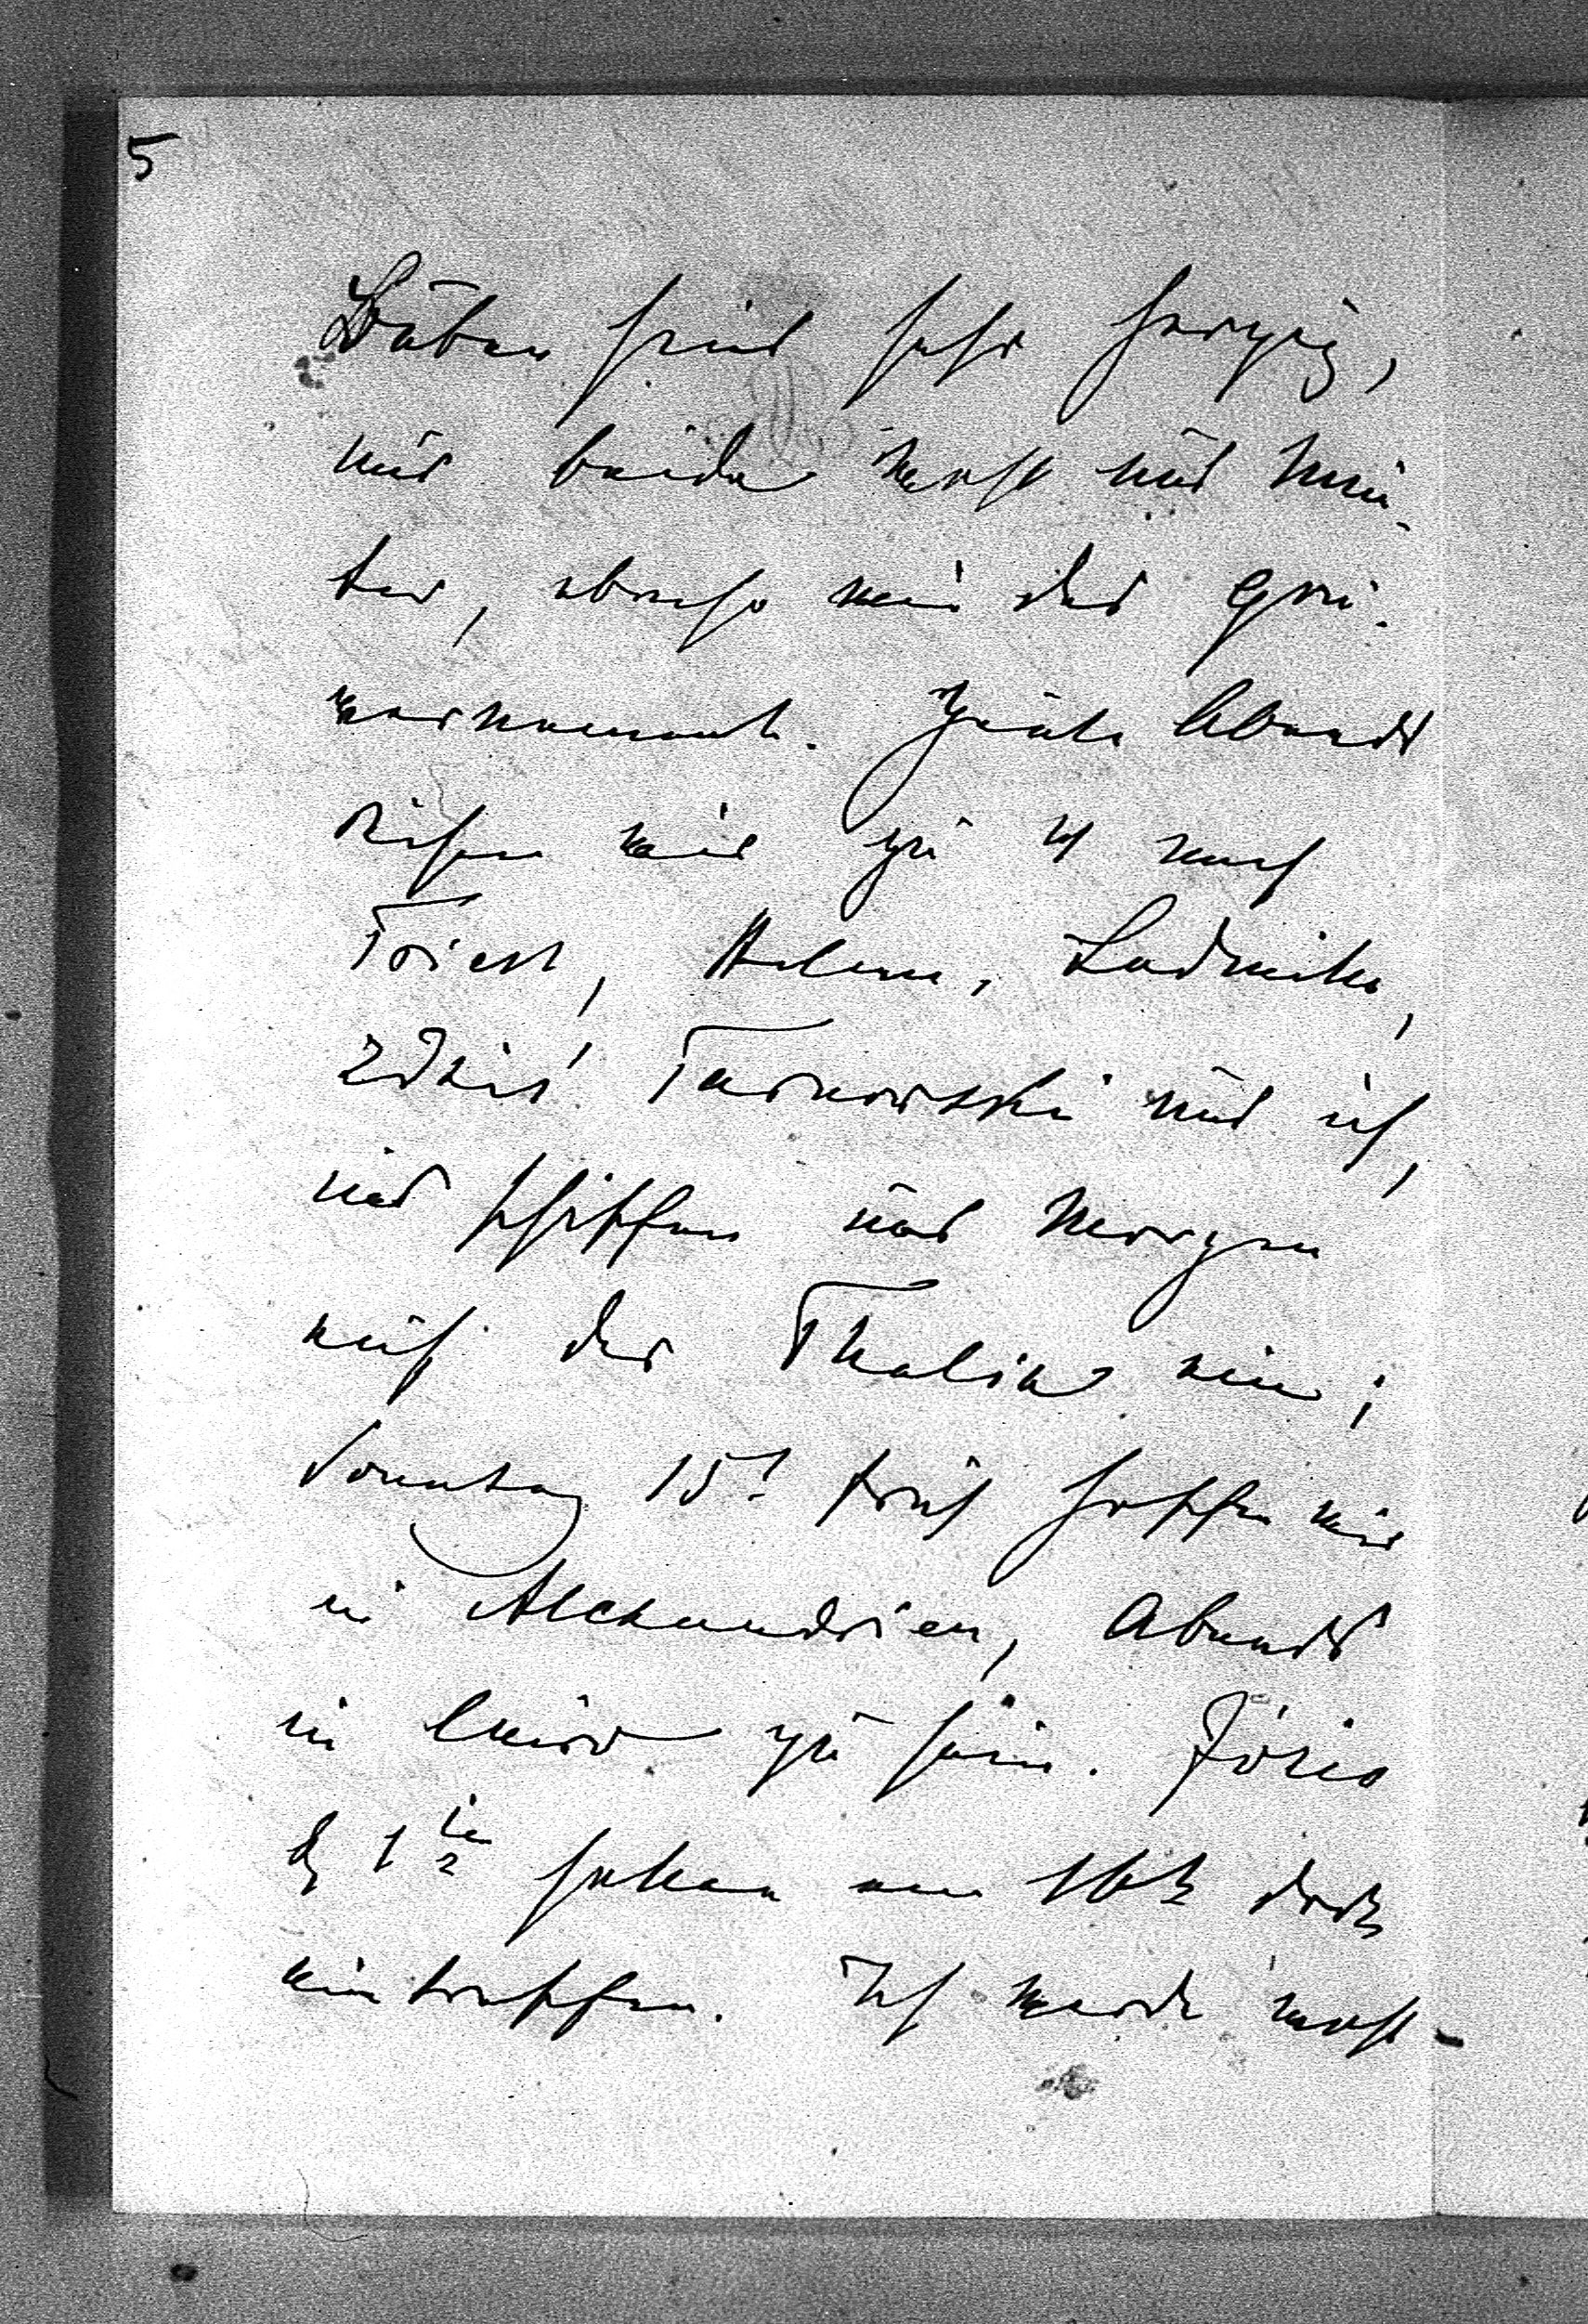 5
Buben sind sehr herzig,
und beide wohl und mun-
ter, ebenso wie die Gou-
vernannte. Heute Abends
reisen wir zu 4 nach
Triest, Helene, Ludmilla,
Zdzis' Tarnowski und ich,
und schiffen uns Morgen
auf der Thalia ein;
Sonntag 15t früh hoffen wir
in Alexandrien, Abends
in Cairo zu sein.
sollen am 16t dort
eintreffen. Ich werde wohl